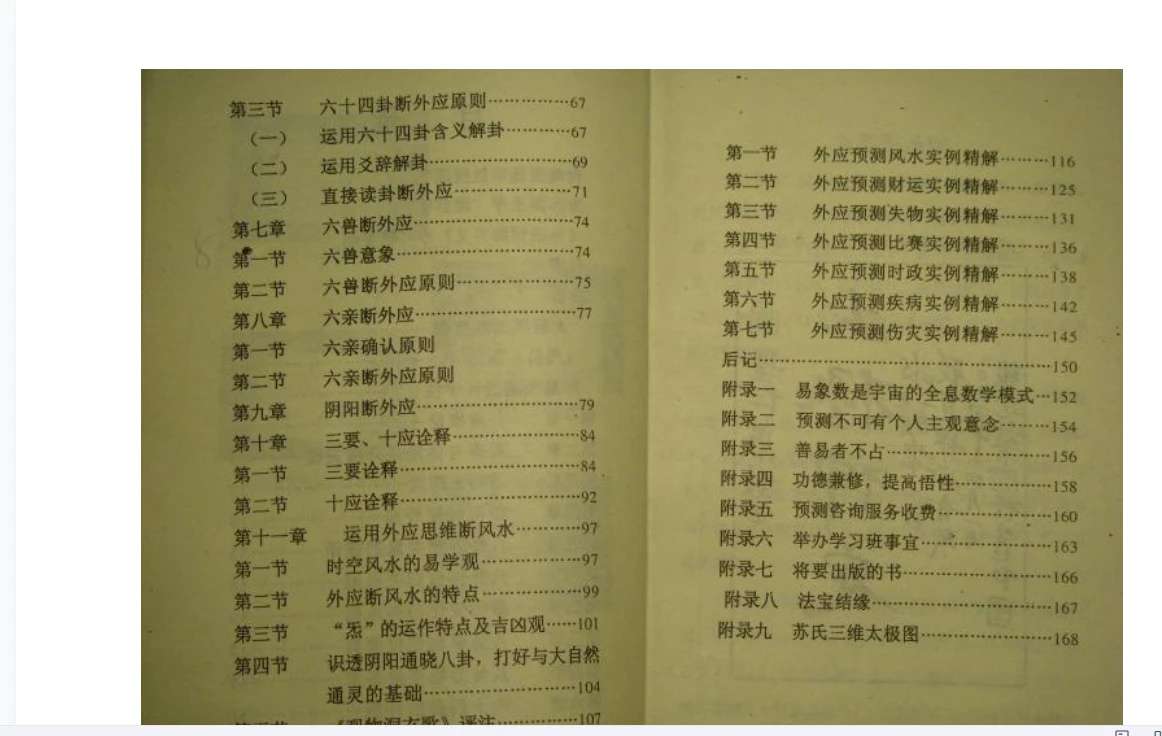 第三节 六十四卦断外应原则……………67
（一） 运用六十四卦含义解卦…………67
（二） 运用爻辞解卦………………………69
（三） 直接读卦断外应……………………71
第七章 六兽断外应…………………………74
第一节 六兽意象……………………………74
第二节 六兽断外应原则……………………75
第八章 六亲断外应…………………………77
第一节 六亲确认原则
第二节 六亲断外应原则
第九章 阴阳断外应…………………………79
第十章 三要、十应诠释……………………84
第一节 三要诠释……………………………84
第二节 十应诠释……………………………92
第十一章 运用外应思维断风水……………97
第一节 时空风水的易学观…………………97
第二节 外应断风水的特点…………………99
第三节 “炁”的运作特点及吉凶观……101
第四节 识透阴阳通晓八卦，打好与大自然
通灵的基础…………………………104
107
第一节 外应预测风水实例精解………116
第二节 外应预测财运实例精解………125
第三节 外应预测失物实例精解………131
第四节 外应预测比赛实例精解………136
第五节 外应预测时政实例精解………138
第六节 外应预测疾病实例精解………142
第七节 外应预测伤灾实例精解………145
后记……………………………………………150
附录一 易象数是宇宙的全息数学模式…152
附录二 预测不可有个人主观意念………154
附录三 善易者不占…………………………156
附录四 功德兼修，提高悟性………………158
附录五 预测咨询服务收费…………………160
附录六 举办学习班事宜……………………163
附录七 将要出版的书………………………166
附录八 法宝结缘……………………………167
附录九 苏氏三维太极图……………………168